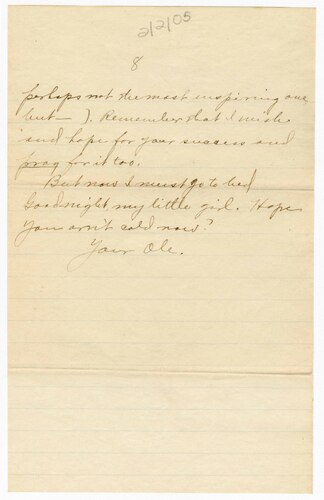 2/2/05
8
perhaps not the most inspiring one
but — ). Remember that I wish
and hope for your success and
pray for it too.
But now I must go to bed
Goodnight my little girl. Hope
you arn't cold now?
Your Ole.